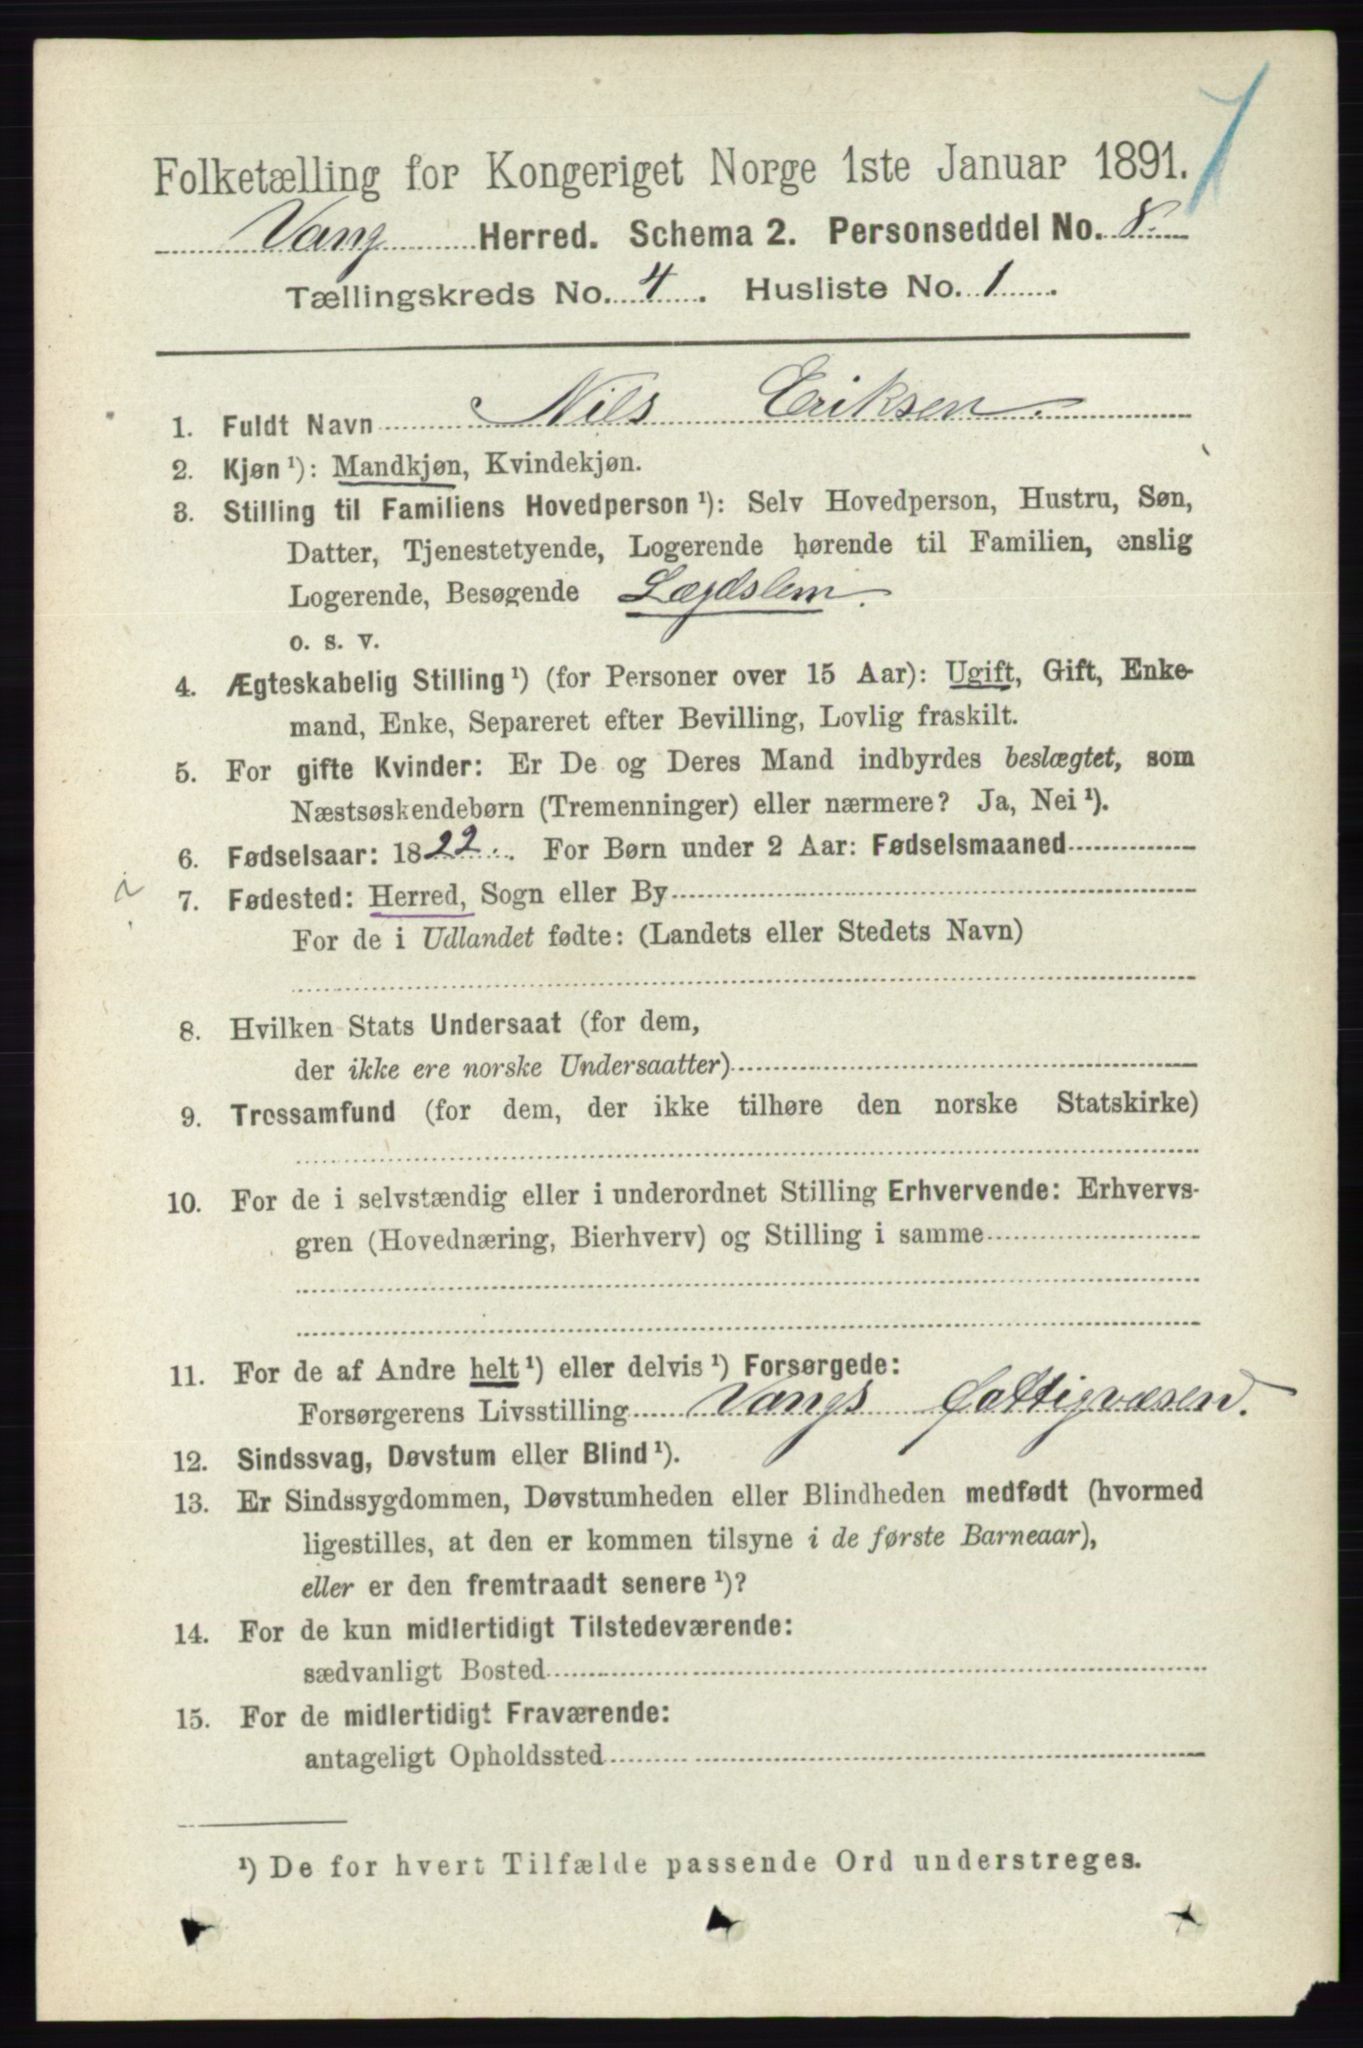 Folketælling for Kongeriget Norge 1ste Januar 1891.
Vang Herred. Schema 2. Personseddel No. 8.
Tællingskreds No. 4. Husliste No. 1
1. Fuldt Navn Nils Eriksen.
2. Kjøn ¹): Mandkjøn, Kvindekjøn.
3. Stilling til Familiens Hovedperson ¹): Selv Hovedperson, Hustru, Søn,
Datter, Tjenestetyende, Logerende hørende til Familien, enslig
Logerende, Besøgende Lægdslem.
o. s. v.
4. Ægteskabelig Stilling ¹) (for Personer over 15 Aar): Ugift, Gift, Enke-
mand, Enke, Separeret efter Bevilling, Lovlig fraskilt.
5. For gifte Kvinder: Er De og Deres Mand indbyrdes beslægtet, som
Næstsøskendebørn (Tremenninger) eller nærmere? Ja, Nei ¹).
6. Fødselsaar: 1822. For Børn under 2 Aar: Fødselsmaaned
7. Fødested: Herred, Sogn eller By
For de i Udlandet fødte: (Landets eller Stedets Navn)
8. Hvilken Stats Undersaat (for dem,
der ikke ere norske Undersaatter)
9. Trossamfund (for dem, der ikke tilhøre den norske Statskirke)
10. For de i selvstændig eller i underordnet Stilling Erhvervende: Erhvervs-
gren (Hovednæring, Bierhverv) og Stilling i samme
11. For de af Andre helt ¹) eller delvis ¹) Forsørgede:
Forsørgerens Livsstilling Vangs Fattigvæsen.
12. Sindssvag, Døvstum eller Blind ¹).
13. Er Sindssygdommen, Døvstumheden eller Blindheden medfødt (hvormed
ligestilles, at den er kommen tilsyne i de første Barneaar),
eller er den fremtraadt senere ¹)?
14. For de kun midlertidigt Tilstedeværende:
sædvanligt Bosted
15. For de midlertidigt Fraværende:
antageligt Opholdssted
¹) De for hvert Tilfælde passende Ord understreges.